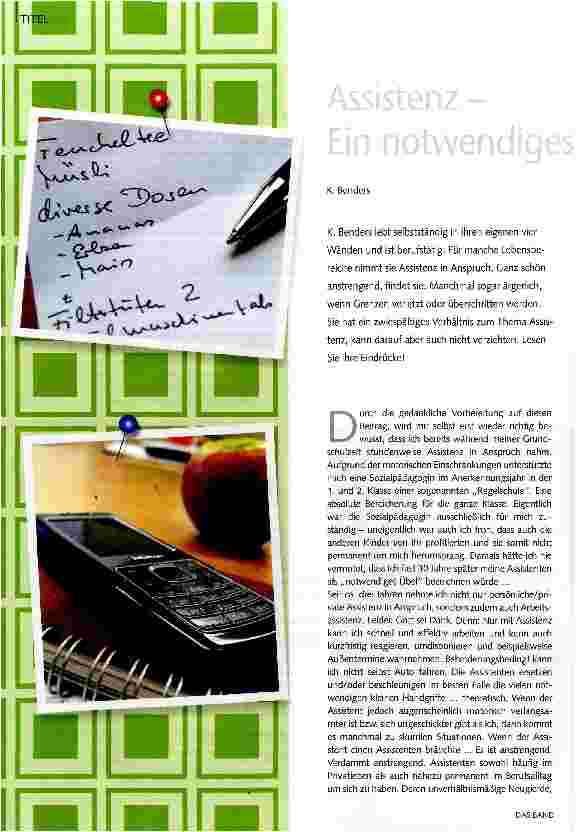 TITEL
Fencheltee
Müsli
diverse Dosen
- Ananas
- Erbsen
- Mais
Filtertüten 2
Assistenz –
Ein notwendiges
K. Benders
K. Benders lebt selbstständig in ihren eigenen vier
Wänden und ist berufstätig. Für manche Lebensbe-
reiche nimmt sie Assistenz in Anspruch. Ganz schön
anstrengend, findet sie. Manchmal sogar ärgerlich,
wenn Grenzen verletzt oder überschritten werden.
Sie hat ein zwiespältiges Verhältnis zum Thema Assis-
tenz, kann darauf aber auch nicht verzichten. Lesen
Sie ihre Eindrücke!
Durch die gedankliche Vorbereitung auf diesen
Beitrag, wird mir selbst erst wieder richtig be-
wusst, dass ich bereits während meiner Grund-
schulzeit stundenweise Assistenz in Anspruch nahm.
Aufgrund der motorischen Einschränkungen unterstützte
mich eine Sozialpädagogin im Anerkennungsjahr in der
1. und 2. Klasse einer sogenannten „Regelschule“. Eine
absolute Bereicherung für die ganze Klasse. Eigentlich
war die Sozialpädagogin ausschließlich für mich zu-
ständig – uneigentlich war auch ich froh, dass auch die
anderen Kinder von ihr profitierten und sie somit nicht
permanent um mich herumsprang. Damals hätte ich nie
vermutet, dass ich fast 30 Jahre später meine Assistenten
als „notwendiges Übel“ bezeichnen würde ...
Seit ca. drei Jahren nehme ich nicht nur persönliche/pri-
vate Assistenz in Anspruch, sondern zudem auch Arbeits-
assistenz. Leider. Gott sei Dank. Denn: Nur mit Assistenz
kann ich schnell und effektiv arbeiten und kann auch
kurzfristig reagieren, umdisponieren und beispielsweise
Außentermine wahrnehmen. Behinderungsbedingt kann
ich nicht selbst Auto fahren. Die Assistenten ersetzen
und/oder beschleunigen im besten Falle die vielen not-
wendigen kleinen Handgriffe ... theoretisch. Wenn der
Assistent jedoch augenscheinlich motorisch verlangsa-
mter ist bzw. sich ungeschickter gibt als ich, dann kommt
es manchmal zu skurrilen Situationen. Wenn der Assi-
stent einen Assistenten bräuchte ... Es ist anstrengend.
Verdammt anstrengend, Assistenten sowohl häufig im
Privatleben als auch nahezu permanent im Berufsalltag
um sich zu haben. Deren unverhältnismäßige Neugierde,
DAS BAND